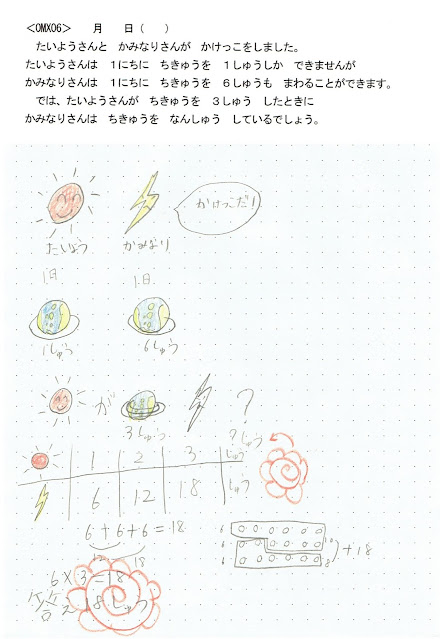 <OMX06>　月　日（　）
たいようさんと　かみなりさんが　かけっこをしました。
たいようさんは　１にちに　ちきゅうを　１しゅうしか　できませんが
かみなりさんは　１にちに　ちきゅうを　６しゅうも　まわることができます。
では、たいようさんが　ちきゅうを　３しゅう　したときに
かみなりさんは　ちきゅうを　なんしゅう　しているでしょう。
かけっこだ！
たいよう　かみなり
1日　1日
1しゅう　6しゅう
が　？
3しゅう　？しゅう
1　2　3　しゅう
6　12　18　しゅう
6+6+6=18
12　18
6　10
6　6　8　+18
6×3=18
答え　18しゅう